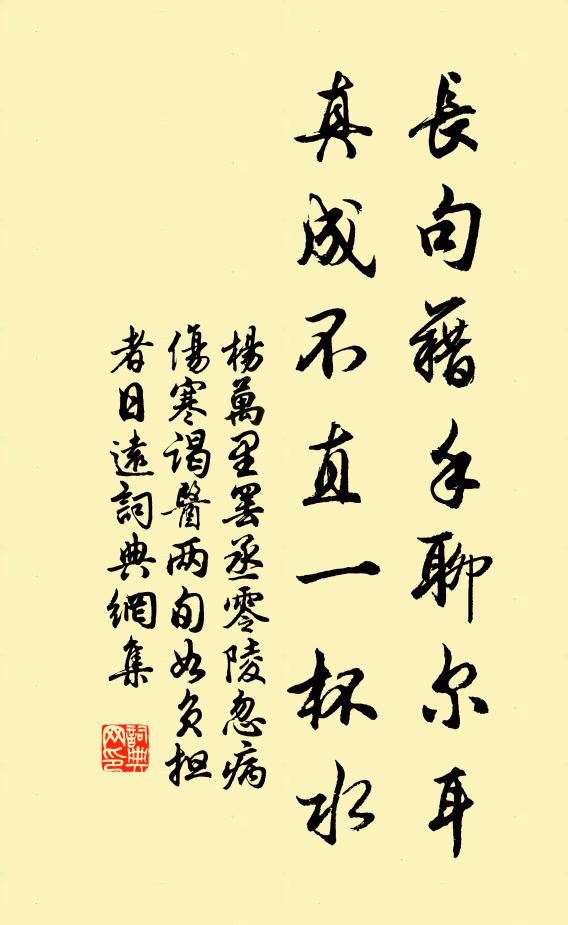 長句藉手聊尔耳
真成不直一杯水
楊萬里罢丞零陵忽病
傷寒谒醫两旬如负担
者日遠詞典網集
詞典网印